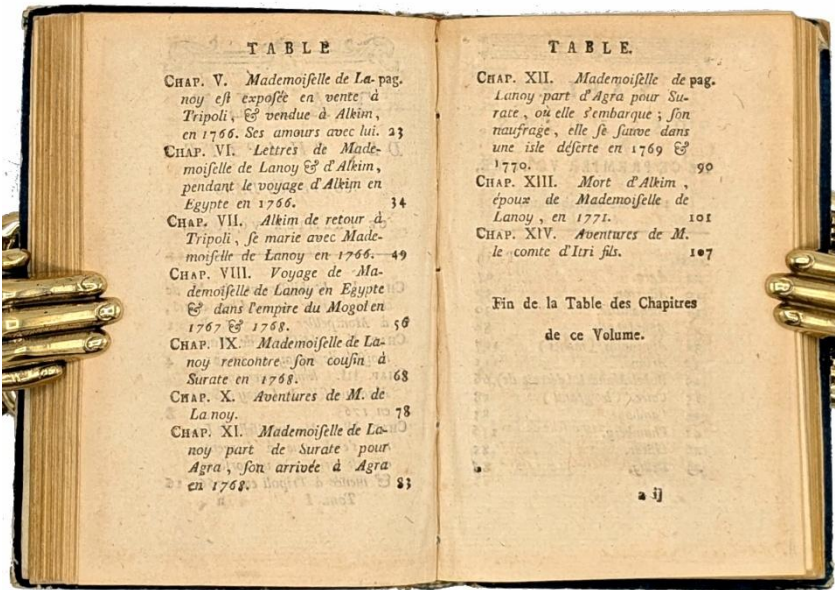 TABLE
CHAP. V. Mademoiſelle de La- pag.
noy eſt expoſée en vente à
Tripoli, & vendue à Alkim,
en 1766. Ses amours avec lui. 23
CHAP. VI. Lettres de Made-
moiſelle de Lanoy & d'Alkim,
pendant le voyage d'Alkim en
Egypte en 1766. 34
CHAP. VII. Alkim de retour à
Tripoli, ſe marie avec Made-
moiſelle de Lanoy en 1766. 49
CHAP. VIII. Voyage de Ma-
demoiſelle de Lanoy en Egypte
& dans l'empire du Mogol en
1767 & 1768. 56
CHAP. IX. Mademoiſelle de La-
noy rencontre ſon couſin à
Surate en 1768. 68
CHAP. X. Aventures de M. de
Lanoy. 78
CHAP. XI. Mademoiſelle de La-
noy part de Surate pour
Agra, ſon arrivée à Agra
en 1768. 83
TABLE.
CHAP. XII. Mademoiſelle de pag.
Lanoy part d'Agra pour Su-
rate, où elle s'embarque; ſon
naufrage, elle ſe ſauve dans
une isle déſerte en 1769 &
1770. 90
CHAP. XIII. Mort d'Alkim,
époux de Mademoiſelle de
Lanoy, en 1771. 101
CHAP. XIV. Aventures de M.
le comte d'Itri fils. 107
Fin de la Table des Chapitres
de ce Volume.
a ij